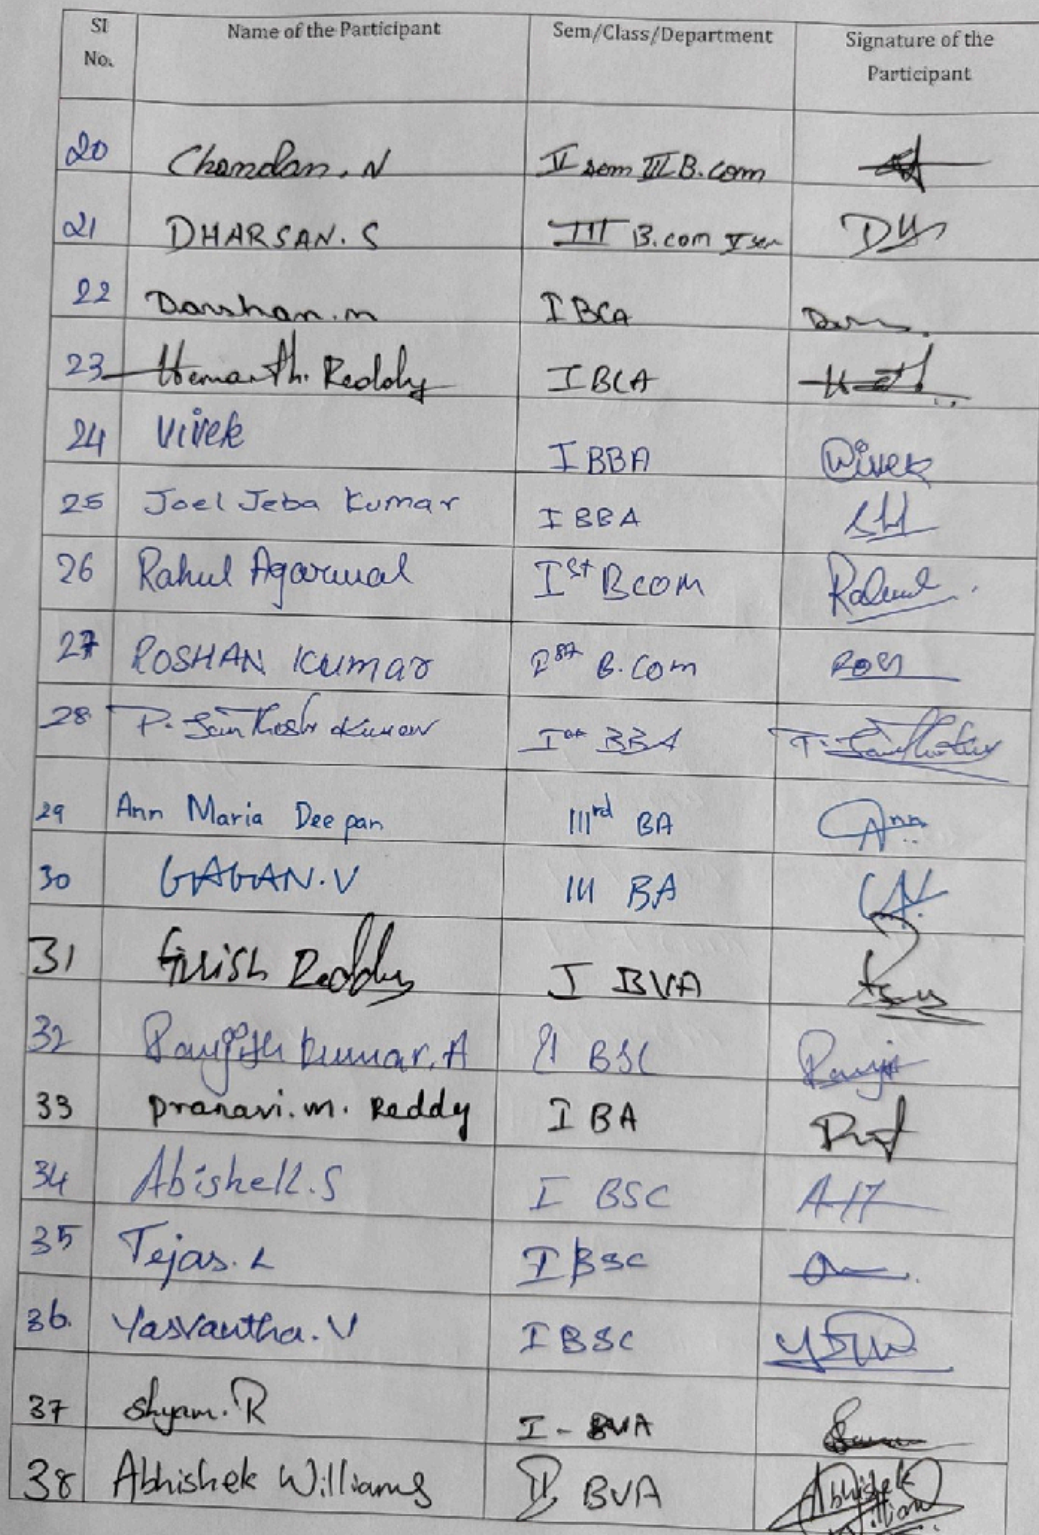 Sl No. Name of the Participant Sem/Class/Department Signature of the Participant
20 Chandan. N V sem III B.com
21 DHARSAN. S III B.com V sem
22 Darshan. m I BCA
23 Hemanth. Reddy I BCA
24 Vivek I BBA Vivek
25 Joel Jeba Kumar I BBA
26 Rahul Agarwal Ist BCOM Rahul
27 ROSHAN KUMAR Ist B.Com
28 P. Santhosh Kumar Ist BBA P. Santhosh
29 Ann Maria Deepan IIIrd BA Ann
30 GAGAN. V III BA
31 Girish Reddy I BVA
32 Ranjith Kumar. A II BSC
33 Pranavi. m. Reddy I BA
34 Abishek. S I BSC
35 Tejas. L I BSC
36. Yasvantha. V I BSC
37 Shyam. R I - BVA
38 Abhishek Williams II BVA Abhishek William